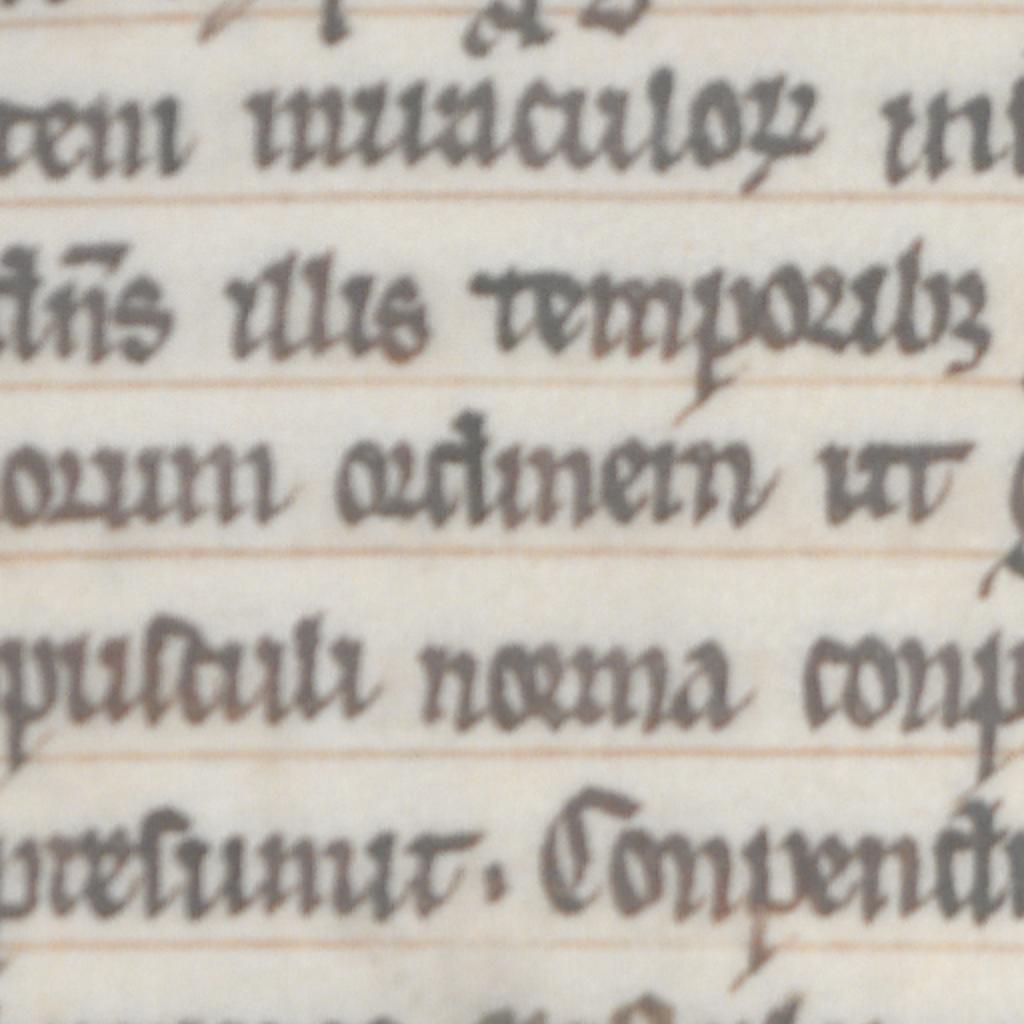 tem miraculoꝝ in
dn̄s illis temporibꝫ
orum ordinem ut
puſculi norma conp
preſumit. Conpendi